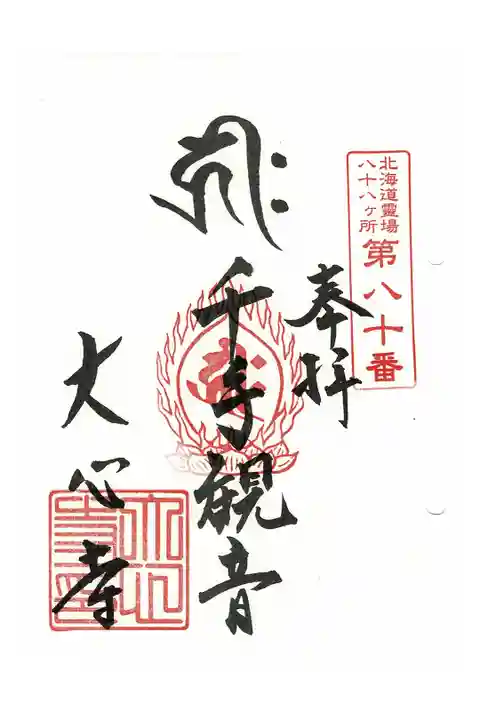 北海道霊場
八十八ヶ所
第八十番
奉拝
千手観音
大心寺